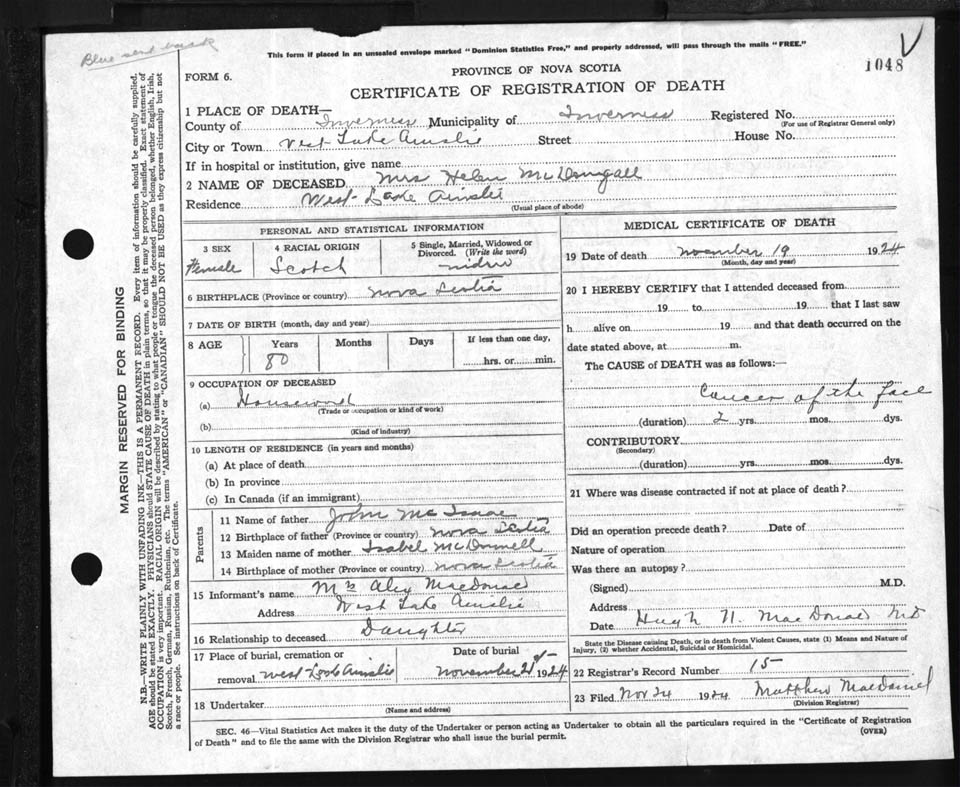 Blue sent back
This form if placed in an unsealed envelope marked "Dominion Statistics Free," and properly addressed, will pass through the mails "FREE."
V
1048
FORM 6.
PROVINCE OF NOVA SCOTIA
CERTIFICATE OF REGISTRATION OF DEATH
MARGIN RESERVED FOR BINDING
N.B.—WRITE PLAINLY WITH UNFADING INK—THIS IS A PERMANENT RECORD. Every item of information should be carefully supplied.
AGE should be stated EXACTLY. PHYSICIANS should STATE CAUSE OF DEATH in plain terms, so that it may be properly classified. Exact statement of
OCCUPATION is very important. RACIAL ORIGIN will be described by stating to what people or tongue the deceased person belonged, whether English, Irish,
Scotch, French, German, Russian, Ruthenian, etc. The terms "AMERICAN" or "CANADIAN" SHOULD NOT BE USED as they express citizenship but not
a race or people. See instructions on back of Certificate.
1 PLACE OF DEATH—
County of Inverness Municipality of Inverness Registered No.
(For use of Registrar General only)
City or Town West Lake Ainslie Street House No.
If in hospital or institution, give name
2 NAME OF DECEASED Mrs Helen McDougall
Residence West Lake Ainslie
(Usual place of abode)
PERSONAL AND STATISTICAL INFORMATION
3 SEX
Female
4 RACIAL ORIGIN
Scotch
5 Single, Married, Widowed or
Divorced. (Write the word)
widow
6 BIRTHPLACE (Province or country) Nova Scotia
7 DATE OF BIRTH (month, day and year)
8 AGE Years Months Days If less than one day,
80 hrs. or min.
9 OCCUPATION OF DECEASED
(a) Housework
(Trade or occupation or kind of work)
(b)
(Kind of industry)
10 LENGTH OF RESIDENCE (in years and months)
(a) At place of death
(b) In province
(c) In Canada (if an immigrant)
Parents
11 Name of father John Mc Isaac
12 Birthplace of father (Province or country) Nova Scotia
13 Maiden name of mother Isabel McDonnell
14 Birthplace of mother (Province or country) Nova Scotia
15 Informant's name Mrs Alex MacDonald
Address West Lake Ainslie
16 Relationship to deceased Daughter
17 Place of burial, cremation or Date of burial
removal West Lake Ainslie November 21st 1924
18 Undertaker
(Name and address)
MEDICAL CERTIFICATE OF DEATH
19 Date of death November 19 1924
(Month, day and year)
20 I HEREBY CERTIFY that I attended deceased from
19 to 19 that I last saw
h alive on 19 and that death occurred on the
date stated above, at m.
The CAUSE of DEATH was as follows:—
Cancer of the face
(duration) 2 yrs. mos. dys.
CONTRIBUTORY
(Secondary)
(duration) yrs. mos. dys.
21 Where was disease contracted if not at place of death?
Did an operation precede death? Date of
Nature of operation
Was there an autopsy?
(Signed) M.D.
Address
Date Hugh N. MacDonald MD
State the Disease causing Death, or in death from Violent Causes, state (1) Means and Nature of
Injury, (2) whether Accidental, Suicidal or Homicidal.
22 Registrar's Record Number 15
23 Filed Nov 24 1924 Matthew MacDaniel
(Division Registrar)
SEC. 46—Vital Statistics Act makes it the duty of the Undertaker or person acting as Undertaker to obtain all the particulars required in the "Certificate of Registration
of Death" and to file the same with the Division Registrar who shall issue the burial permit.
(OVER)